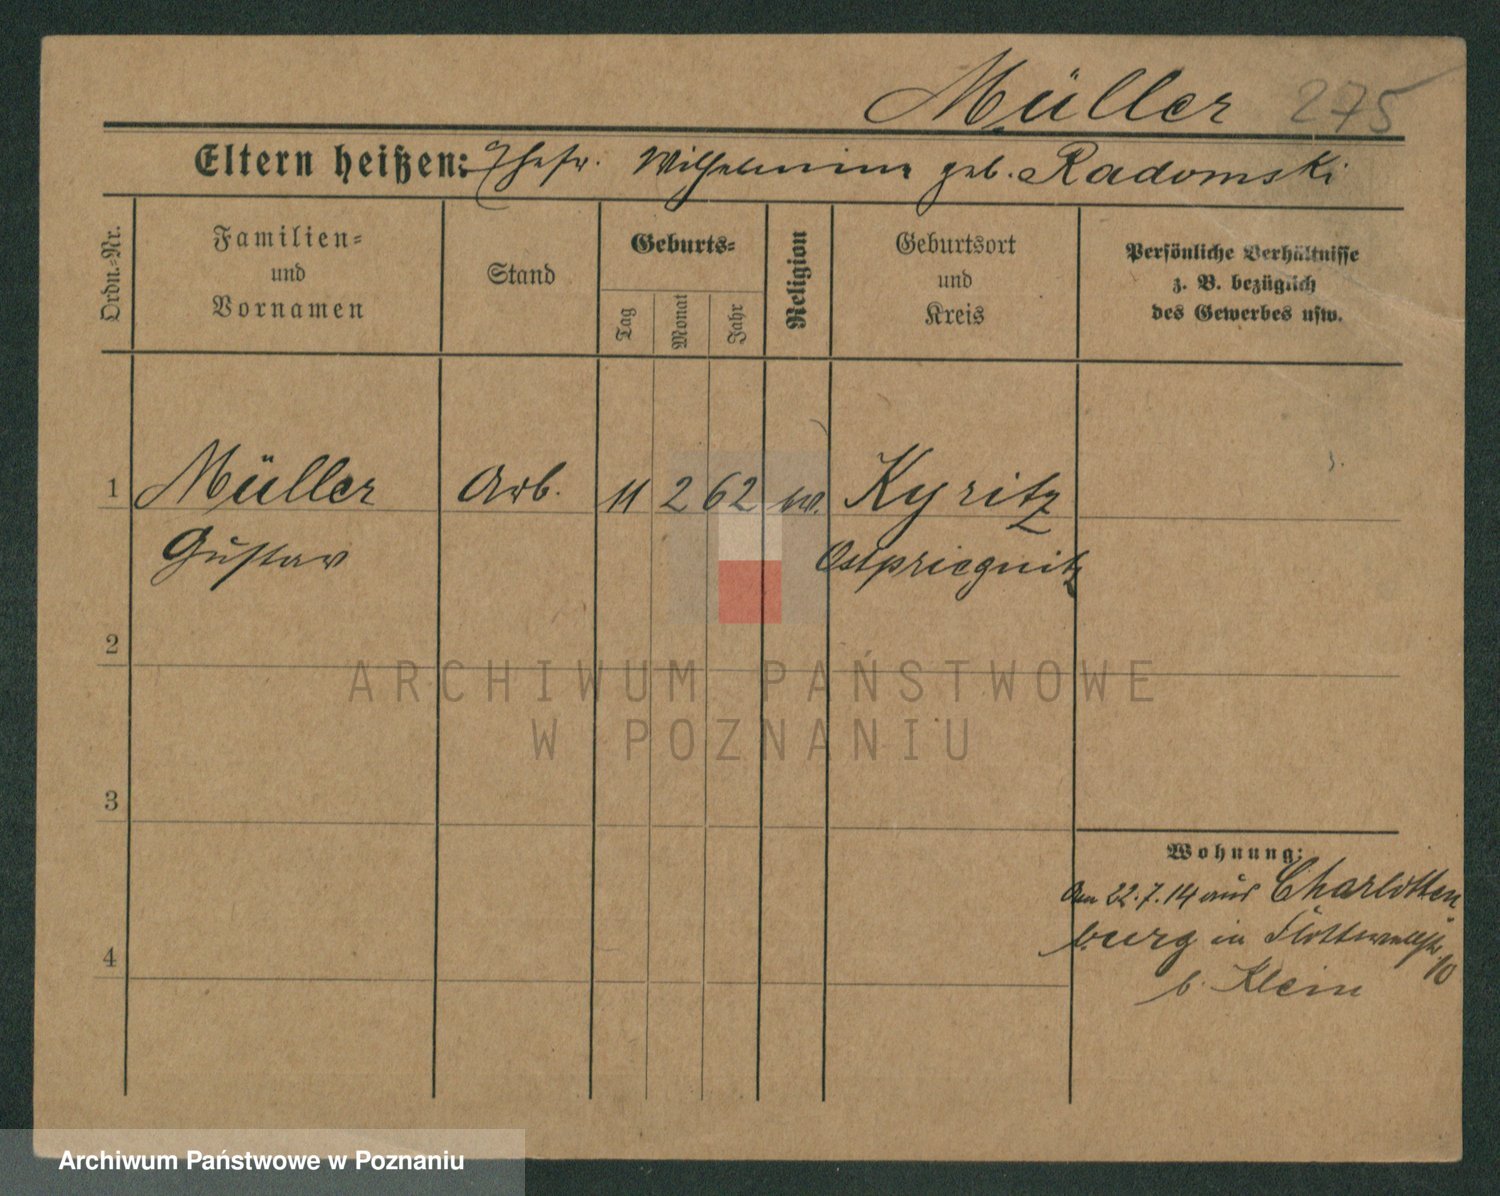 Müller 275
Eltern heißen: Ehefr. Wilhelmine geb. Radomski
Ordn.-Nr.
Familien-
und
Vornamen
Stand
Geburts-
Tag
Monat
Jahr
Religion
Geburtsort
und
Kreis
Persönliche Verhältnisse
z. B. bezüglich
des Gewerbes usw.
1 Müller Arb. 11 2 62 ev. Kyritz
Gustav Ostpriegnitz
2
3
4
Wohnung:
Am 22.7.14 aus Charlotten
burg in Flottwellstr. 10
b. Klein
ARCHIWUM PAŃSTWOWE
W POZNANIU
Archiwum Państwowe w Poznaniu